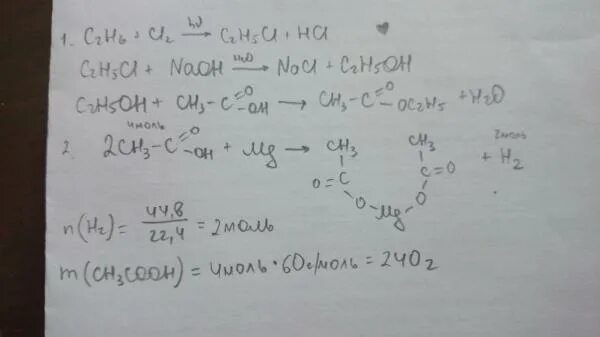 1. C2H6 + Cl2 →hν C2H5Cl + HCl
C2H5Cl + NaOH →H2O NaCl + C2H5OH
C2H5OH + CH3-C=O OH → CH3-C=O OC2H5 + H2O
4моль 2моль
2. 2CH3-C=O OH + Mg → CH3 CH3 + H2
O=C C=O
O-Mg-O
n(H2) = 44,8/22,4 = 2моль
m(CH3COOH) = 4моль·60г/моль = 240г